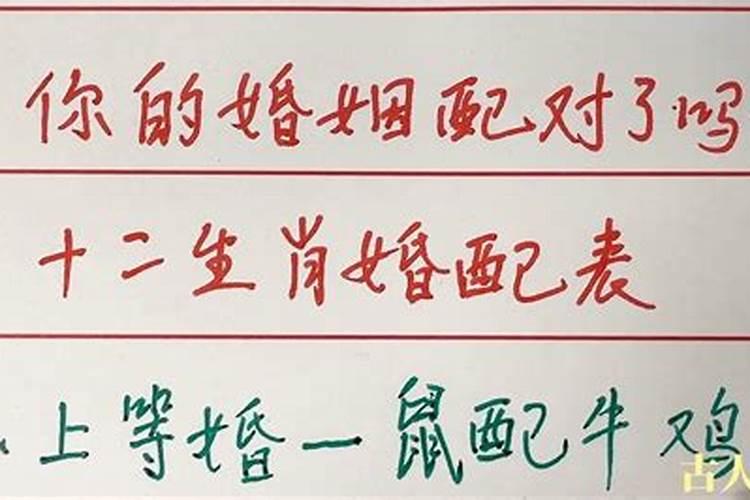 你的婚姻配对了吗
十二生肖婚配表
上等婚一鼠配牛鸡
古人